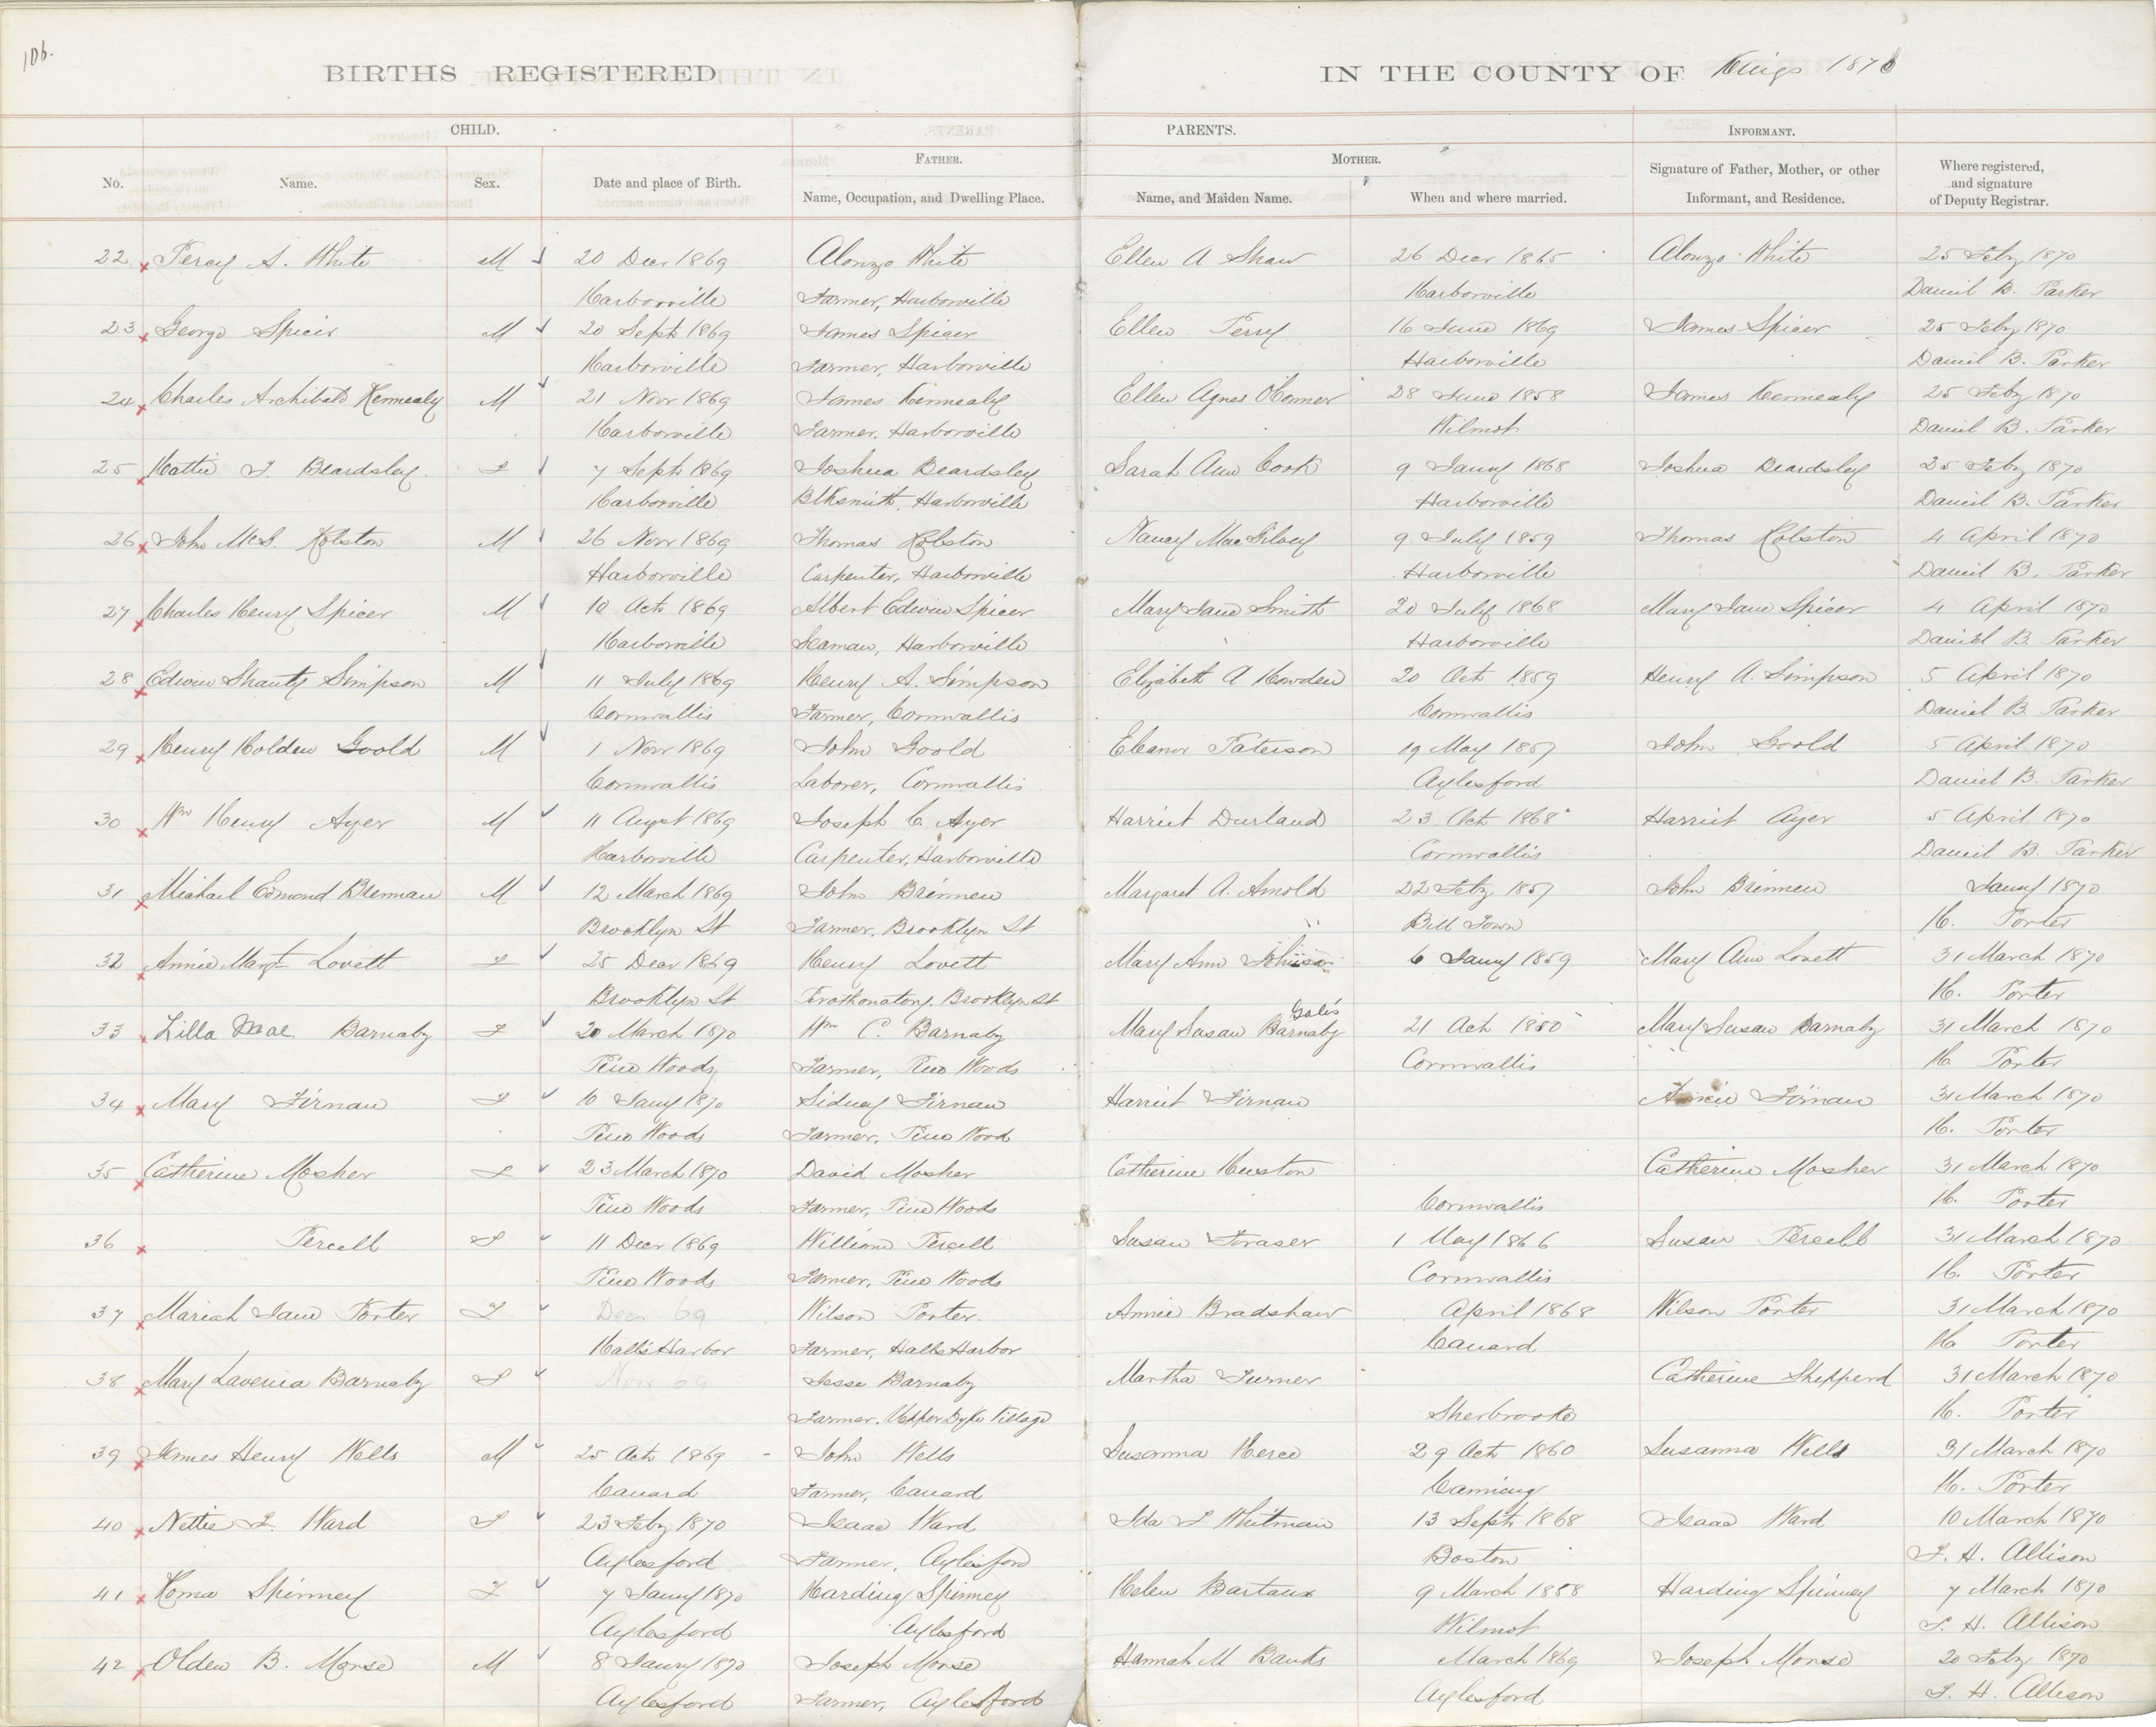 106.
BIRTHS REGISTERED IN THE COUNTY OF Kings 1870
CHILD. PARENTS. INFORMANT.
FATHER. MOTHER.
No. Name. Sex. Date and place of Birth. Name, Occupation, and Dwelling Place. Name, and Maiden Name. When and where married. Signature of Father, Mother, or other Informant, and Residence. Where registered, and signature of Deputy Registrar.
22 Percy A. White M 20 Decr 1869 Alonzo White Ellen A Shaw 26 Decr 1865 Alonzo White 25 Feby 1870
Harborville Farmer, Harborville Harborville Daniel B. Parker
23 George Spicer M 20 Septr 1869 James Spicer Ellen Perry 16 June 1869 James Spicer 25 Feby 1870
Harborville Farmer, Harborville Harborville Daniel B. Parker
24 Charles Archibald Kennealy M 21 Novr 1869 James Kennealy Ellen Agnes O'Conner 28 June 1858 James Kennealy 25 Feby 1870
Harborville Farmer, Harborville Wilmot Daniel B. Parker
25 Hattie F. Beardsley F 7 Septr 1869 Joshua Beardsley Sarah Ann Cook 9 Jany 1868 Joshua Beardsley 25 Feby 1870
Harborville Blksmith, Harborville Harborville Daniel B. Parker
26 John McG. Rolston M 26 Novr 1869 Thomas Rolston Nancy MacGilvey 9 July 1859 Thomas Rolston 4 April 1870
Harborville Carpenter, Harborville Harborville Daniel B. Parker
27 Charles Henry Spicer M 10 Octr 1869 Albert Edwin Spicer Mary Jane Smith 20 July 1868 Mary Jane Spicer 4 April 1870
Harborville Seaman, Harborville Harborville Daniel B. Parker
28 Edwin Shanty Simpson M 11 July 1869 Henry A. Simpson Elizabeth A Howden 20 Oct 1859 Henry A. Simpson 5 April 1870
Cornwallis Farmer, Cornwallis Cornwallis Daniel B. Parker
29 Henry Holden Goold M 1 Novr 1869 John Goold Eleanor Paterson 19 May 1857 John Goold 5 April 1870
Cornwallis Laborer, Cornwallis Aylesford Daniel B. Parker
30 Wm Henry Ayer M 11 Augst 1869 Joseph C. Ayer Harriet Durland 23 Oct 1868 Harriet Ayer 5 April 1870
Harborville Carpenter, Harborville Cornwallis Daniel B. Parker
31 Michail Edmond Brennan M 12 March 1869 John Brennen Margaret A. Arnold 22 Feby 1857 John Brinnen Jany 1870
Brooklyn St Farmer, Brooklyn St Bill Town H. Porter
32 Annie Margt Lovett F 25 Decr 1869 Henry Lovett Mary Ann Johnson 6 Jany 1859 Mary Ann Lovett 31 March 1870
Brooklyn St Prothonatory, Brooklyn St H. Porter
33 Lilla Mae Barnaby F 20 March 1870 Wm C. Barnaby Mary Susan Barnaby 21 Oct 1850 Mary Susan Barnaby 31 March 1870
Pine Woods Farmer, Pine Woods Cornwallis H. Porter
34 Mary Firnan F 10 Jany 1870 Sidney Firnan Harriet Firnan Firnan 31 March 1870
Pine Woods Farmer, Pine Wood H. Porter
35 Catherine Mosher F 23 March 1870 David Mosher Catherine Huston Catherine Mosher 31 March 1870
Pine Woods Farmer, Pine Woods Cornwallis H. Porter
36 Percell F 11 Decr 1869 William Percell Susan Fraser 1 May 1866 Susan Percell 31 March 1870
Pine Woods Farmer, Pine Woods Cornwallis H. Porter
37 Mariah Jane Porter F Decr 69 Wilson Porter. Annie Bradshaw April 1868 Wilson Porter 31 March 1870
Halls Harbor Farmer, Halls Harbor Canard H. Porter
38 Mary Lavenia Barnaby F Novr 69 Jesse Barnaby Martha Turner Catherine Shepperd 31 March 1870
Farmer, Upper Dyke Village Sherbrooke H. Porter
39 James Henry Wells M 25 Octr 1869 John Wells Susanna Merce 29 Oct 1860 Susanna Wells 31 March 1870
Canard Farmer, Canard Canning H. Porter
40 Nettie F. Ward F 23 Feby 1870 Isaac Ward Ida F Whitman 13 Septr 1868 Isaac Ward 10 March 1870
Aylesford Farmer, Aylesford Boston F. H. Allison
41 Roma Spinney F 7 Jany 1870 Harding Spinney Helen Bartaux 9 March 1858 Harding Spinney 7 March 1870
Aylesford Aylesford Wilmot F. H. Allison
42 Olden B. Morse M 8 Jany 1870 Joseph Morse Hannah M Banks March 1869 Joseph Morse 20 Feby 1870
Aylesford Farmer, Aylesford Aylesford F. H. Allison